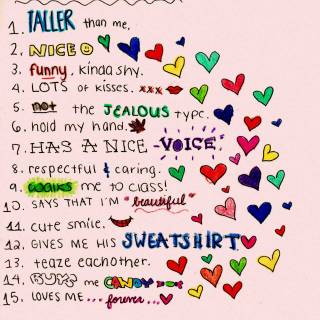 1. TALLER than me,
2. NICE
3. funny, kinda shy.
4. LOTS of kisses. xxx
5. not the JEALOUS type.
6. hold my hand.
7. HAS A NICE -VOICE-
8. respectful & caring.
9. walks me to class!
10. SAYS THAT I'M "beautiful"
11. cute smile.
12. GIVES ME HIS SWEATSHIRT
13. teaze eachother.
14. BUYS me CANDY
15. LOVES ME... forever...